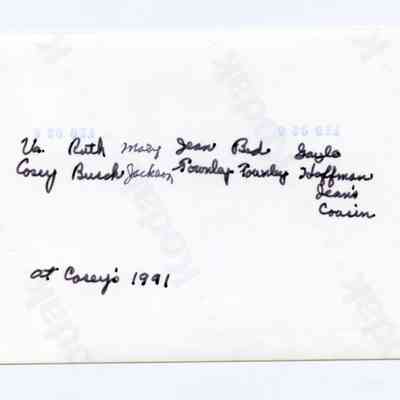 Va. Ruth Mary Jean Bud Gayle
Casey Busch Jackson Townley Townley Hoffman
Jean's
Cousin
at Casey's 1991
Kodak
Kodak
Kodak
Kodak